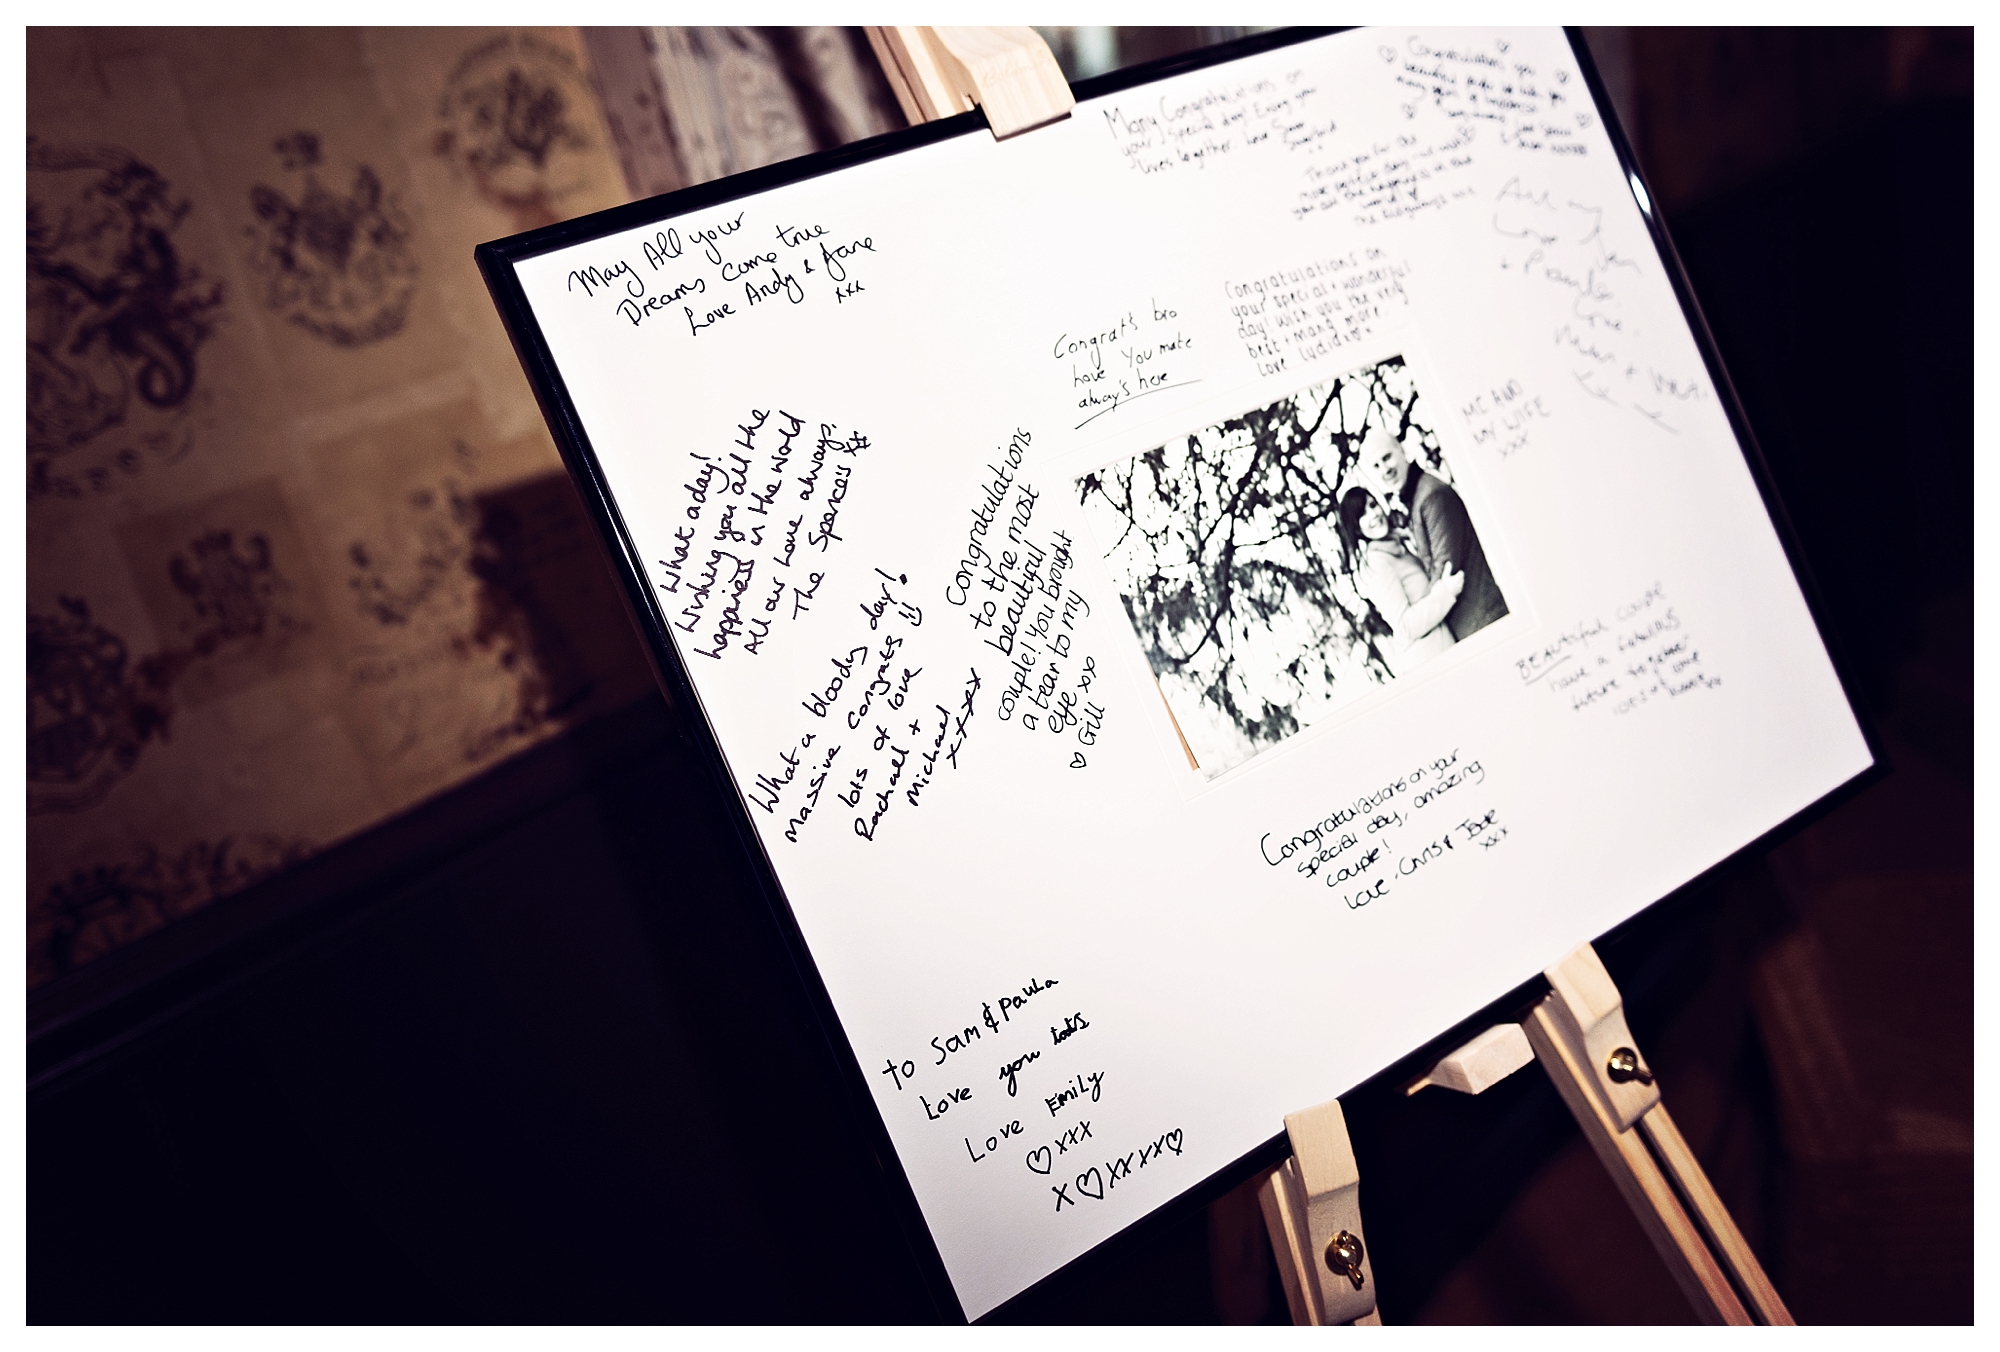 May All your
Dreams Come true
Love Andy & Jane
xxx
What a day!
Wishing you all the
happiness in the world
All our Love always.
The Spence's xx
What a bloody day!
Massive congrats
lots of love
Rachael +
Michael
xxxxx
Congratulations
to the most
beautyful
couple! You brought
a tear to my
eye xx
♡ Gill
Congrat's bro
love You mate
always here
Congratulations on
your special + wonderful
day! Wish you the very
best + many more.
Love Lydia
Many Congratulations on
your Special day! Enjoy you
lives together. Love
Thank you for the
most perfect day - we wish
you all the happiness in the
world ♡
The Ridgways xxx
Congratulations you
beautiful
many years of happiness
Love
ME AND
MY WIFE
xxx
BEAUTIFUL COUPLE
have a fabulous
future together
lots of love
Congratulations on your
special day, amazing
couple!
Love - Chris & Jade
xxx
to Sam & Paula
Love you lots
Love Emily
♡xxx
x♡xxxxx♡